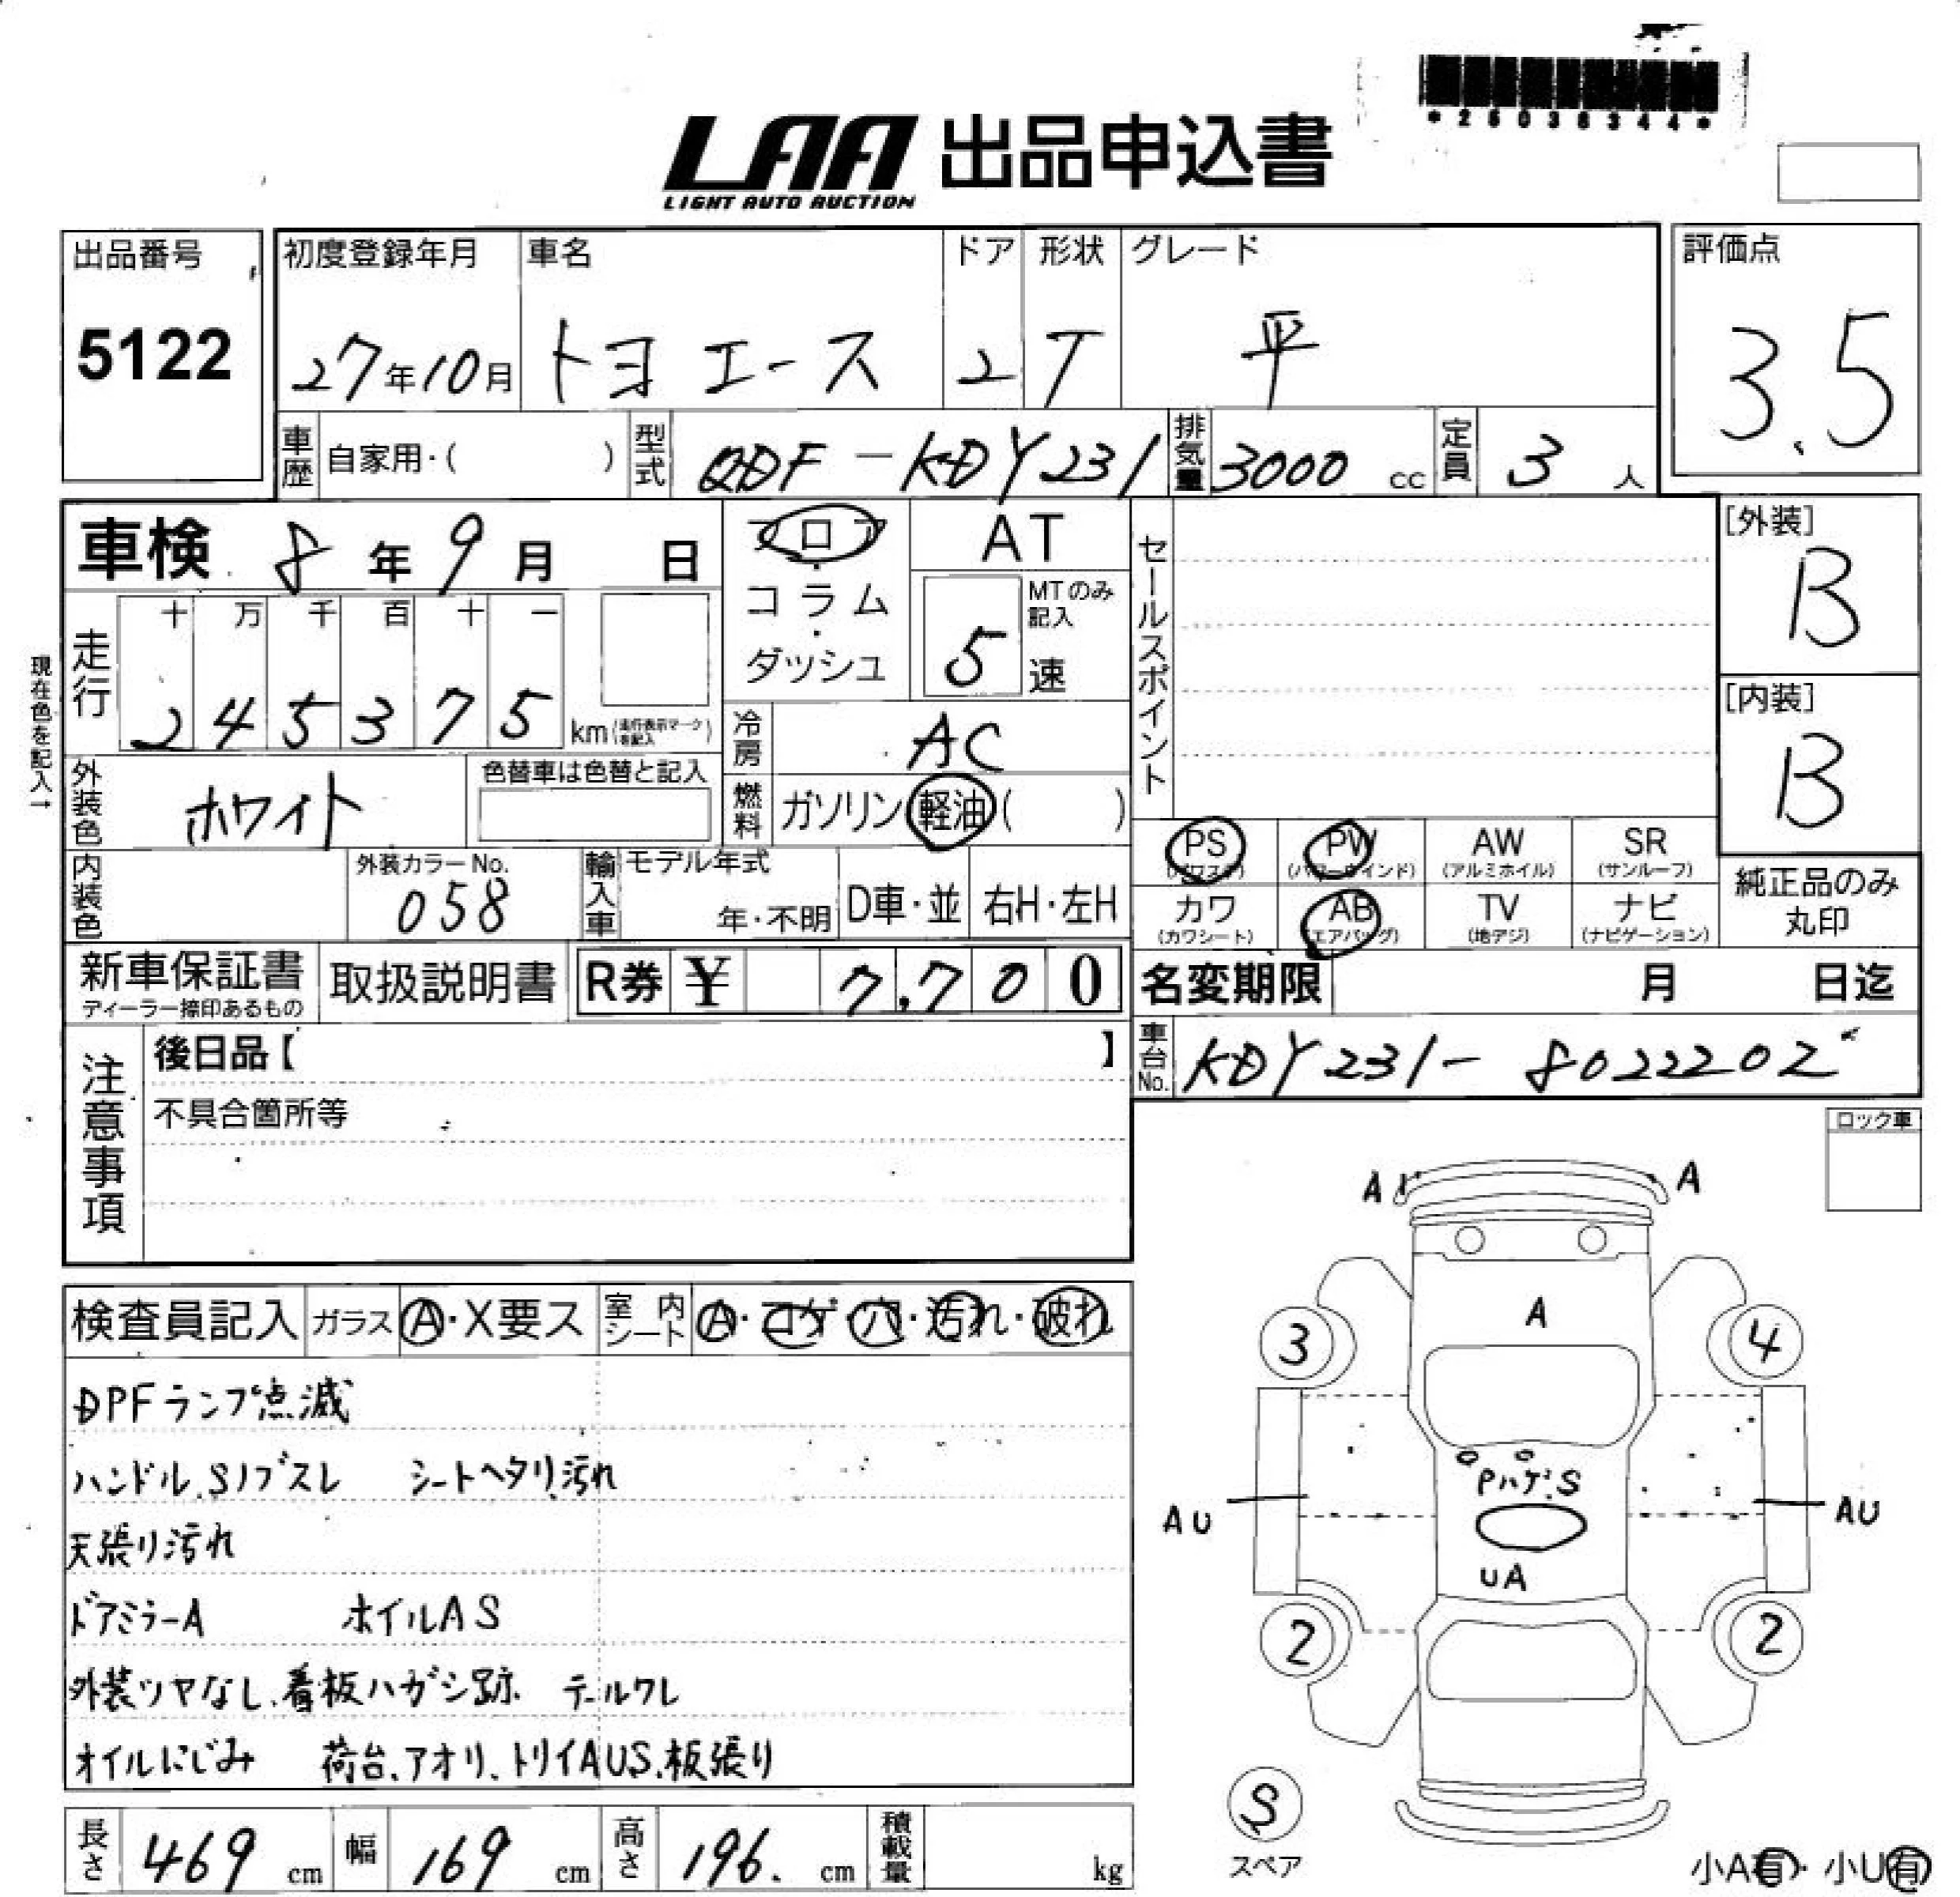 *26036344*
LAA 出品申込書
LIGHT AUTO AUCTION
出品番号
5122
初度登録年月
27年10月
車名
トヨエース
ドア
2
形状
T
グレード
平
評価点
3.5
車歴 自家用・( )
型式 QDF-KDY231
排気量 3000 cc
定員 3 人
車検 8年9月 日
フロア
コラム
・
ダッシュ
AT
MTのみ記入
5 速
セールスポイント
[外装]
B
[内装]
B
現在色を記入→
走行
十 万 千 百 十 一
2 4 5 3 7 5 km (走行表示マークを記入)
冷房 AC
外装色 ホワイト
色替車は色替と記入
燃料 ガソリン 軽油 ( )
内装色
外装カラーNo.
058
輸入車
モデル年式
年・不明
D車・並
右H・左H
PS (パワステ)
PW (パワーウインド)
AW (アルミホイル)
SR (サンルーフ)
カワ (カワシート)
AB (エアバッグ)
TV (地デジ)
ナビ (ナビゲーション)
純正品のみ
丸印
新車保証書
ディーラー捺印あるもの
取扱説明書
R券 ¥ 7,700
名変期限 月 日迄
注意事項
後日品【 】
不具合箇所等
車台No. KDY231-8022202
ロック車
検査員記入 ガラス A・X要ス
室内シート A・コゲ・穴・汚れ・破れ
DPFランプ点滅
ハンドル.Sノブスレ シートヘタリ汚れ
天張り汚れ
ドアミラーA ホイルAS
外装ツヤなし.看板ハガシ跡. テールワレ
オイルにじみ 荷台.アオリ.トリイAUS.板張り
A A
A
3 4
PハゲS
AU AU
UA
2 2
S
スペア
小A有・小U有
長さ 469 cm
幅 169 cm
高さ 196. cm
積載量 kg